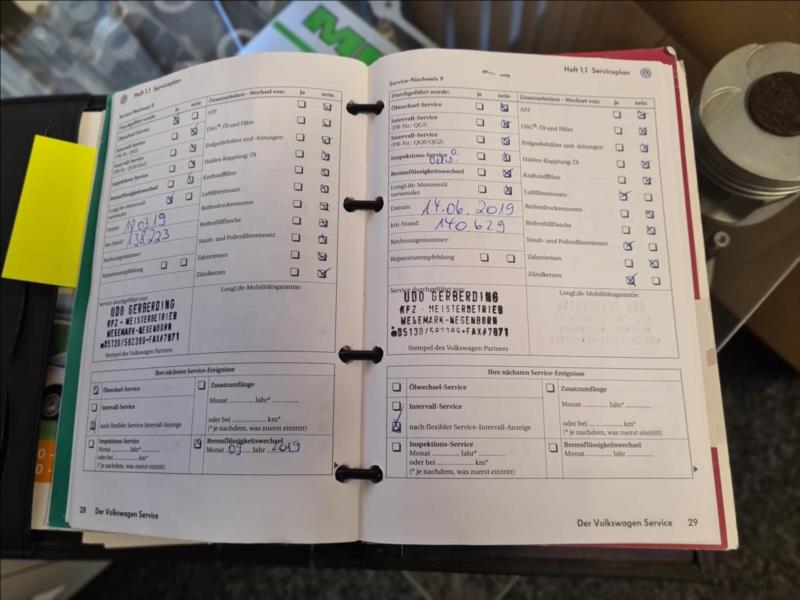 Heft 1.1 Serviceplan
Service-Nachweis 8
Durchgeführt wurde:
ja
nein
Ölwechsel-Service
Intervall-Service
(PR-Nr.: QG1)
Intervall-Service
(PR-Nr.: QG0/QG2)
Inspektions-Service
Bremsflüssigkeitswechsel
LongLife-Motorenöl
verwendet
Datum:
18.03.19
km-Stand:
138.223
Rechnungsnummer:
Reparaturempfehlung
Zusatzarbeiten - Wechsel von:
ja
nein
ATF
DSG®: Öl und Filter
Erdgasbehälter und -leitungen
Haldex-Kupplung: Öl
Kraftstofffilter
Luftfiltereinsatz
Reifendrucksensoren
Reifenfüllflasche
Staub- und Pollenfiltereinsatz
Zahnriemen
Zündkerzen
Service durchgeführt von:
LongLife-Mobilitätsgarantie:
UDO GERBERDING
KFZ - MEISTERBETRIEB
WEDEMARK-NEGENBORN
05130/582389+FAX#7871
Stempel des Volkswagen Partners
Ihre nächsten Service-Ereignisse
Ölwechsel-Service
Intervall-Service
nach flexibler Service-Intervall-Anzeige
Zusatzumfänge
Monat ........... Jahr* ...........
oder bei ........... km*
(* je nachdem, was zuerst eintritt)
Inspektions-Service
Monat ........... Jahr* ...........
oder bei ........... km*
(* je nachdem, was zuerst eintritt)
Bremsflüssigkeitswechsel
Monat 09 Jahr 2019
28 Der Volkswagen Service
MP
Heft 1.1 Serviceplan
Service-Nachweis 9
Durchgeführt wurde:
ja
nein
Ölwechsel-Service
Intervall-Service
(PR-Nr.: QG1)
Intervall-Service
(PR-Nr.: QG0/QG2)
Inspektions-Service
Bremsflüssigkeitswechsel
LongLife-Motorenöl
verwendet
Datum:
14.06.2019
km-Stand:
140.629
Rechnungsnummer:
Reparaturempfehlung
Zusatzarbeiten - Wechsel von:
ja
nein
ATF
DSG®: Öl und Filter
Erdgasbehälter und -leitungen
Haldex-Kupplung: Öl
Kraftstofffilter
Luftfiltereinsatz
Reifendrucksensoren
Reifenfüllflasche
Staub- und Pollenfiltereinsatz
Zahnriemen
Zündkerzen
Service durchgeführt von:
LongLife-Mobilitätsgarantie:
UDO GERBERDING
KFZ - MEISTERBETRIEB
WEDEMARK-NEGENBORN
05130/582389+FAX#7871
Stempel des Volkswagen Partners
Ihre nächsten Service-Ereignisse
Ölwechsel-Service
Intervall-Service
nach flexibler Service-Intervall-Anzeige
Zusatzumfänge
Monat ........... Jahr* ...........
oder bei ........... km*
(* je nachdem, was zuerst eintritt)
Inspektions-Service
Monat ........... Jahr* ...........
oder bei ........... km*
(* je nachdem, was zuerst eintritt)
Bremsflüssigkeitswechsel
Monat ........... Jahr ...........
Der Volkswagen Service 29